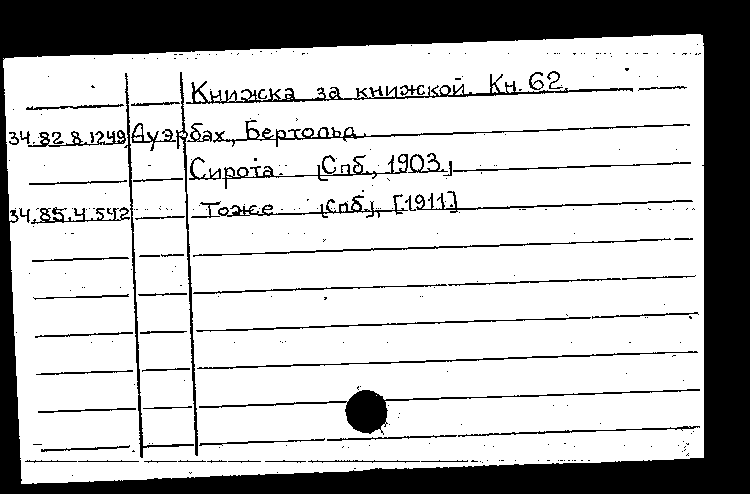 Книжка за книжкой. Кн. 62.
34.82.8.1249 Ауэрбах, Бертольд.
Сирота. [Спб., 1903.]
34.85.4.542 Тоже [Спб.], [1911.]